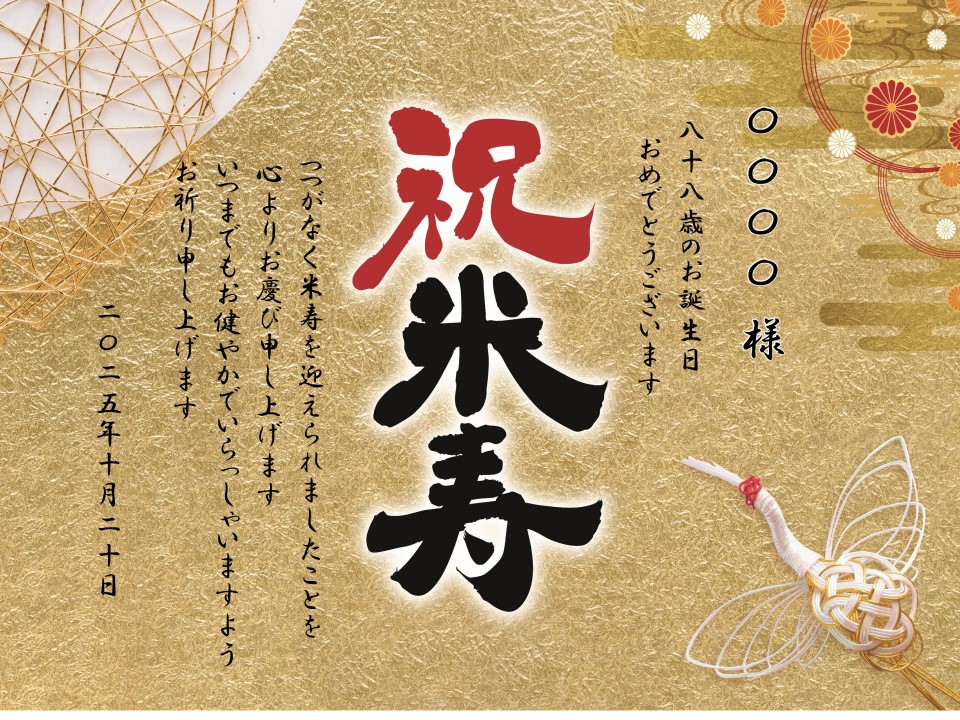 〇〇〇〇 様
八十八歳のお誕生日
おめでとうございます
祝米寿
つつがなく米寿を迎えられましたことを
心よりお慶び申し上げます
いつまでもお健やかでいらっしゃいますよう
お祈り申し上げます
二〇二五年十月二十日